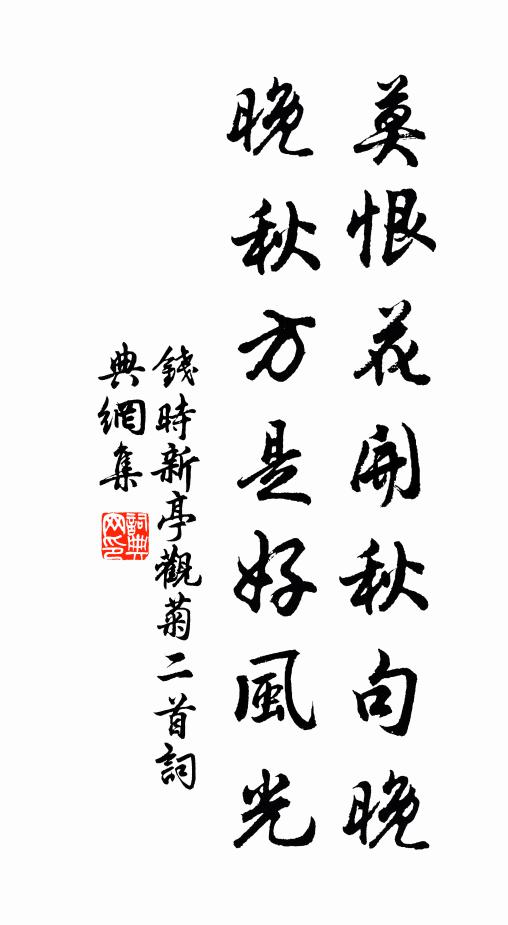 莫恨花開秋句晚
晚秋方是好風光
錢時新亭觀菊二首詞
典網集
詞典網印